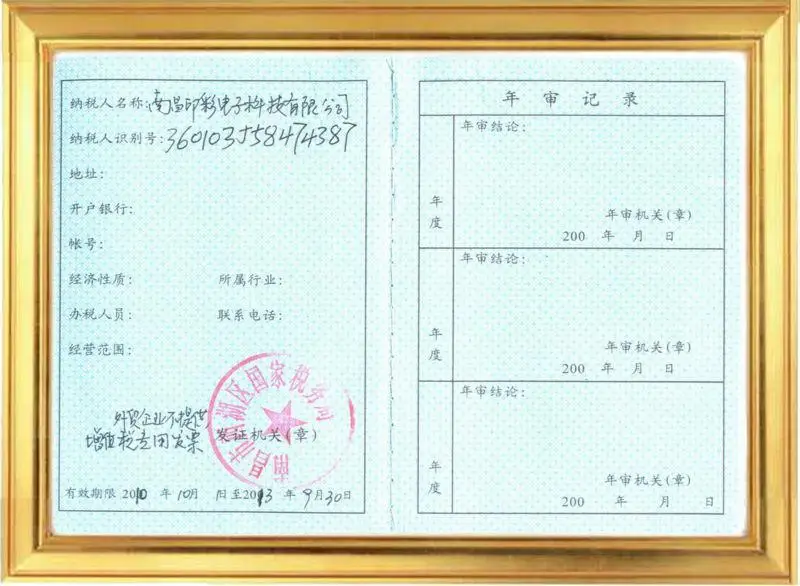 纳税人名称:南昌印彩电子科技有限公司
纳税人识别号:360103558474387
地址:
开户银行:
帐号:
经济性质: 所属行业:
办税人员: 联系电话:
经营范围:
南昌市西湖区国家税务局
外贸企业不提供
增值税专用发票
发证机关(章)
有效期限 2010 年 10月 1日至2013 年 9月30日
年审记录
年审结论:
年度
年审机关(章)
200 年 月 日
年审结论:
年度
年审机关(章)
200 年 月 日
年审结论:
年度
年审机关(章)
200 年 月 日